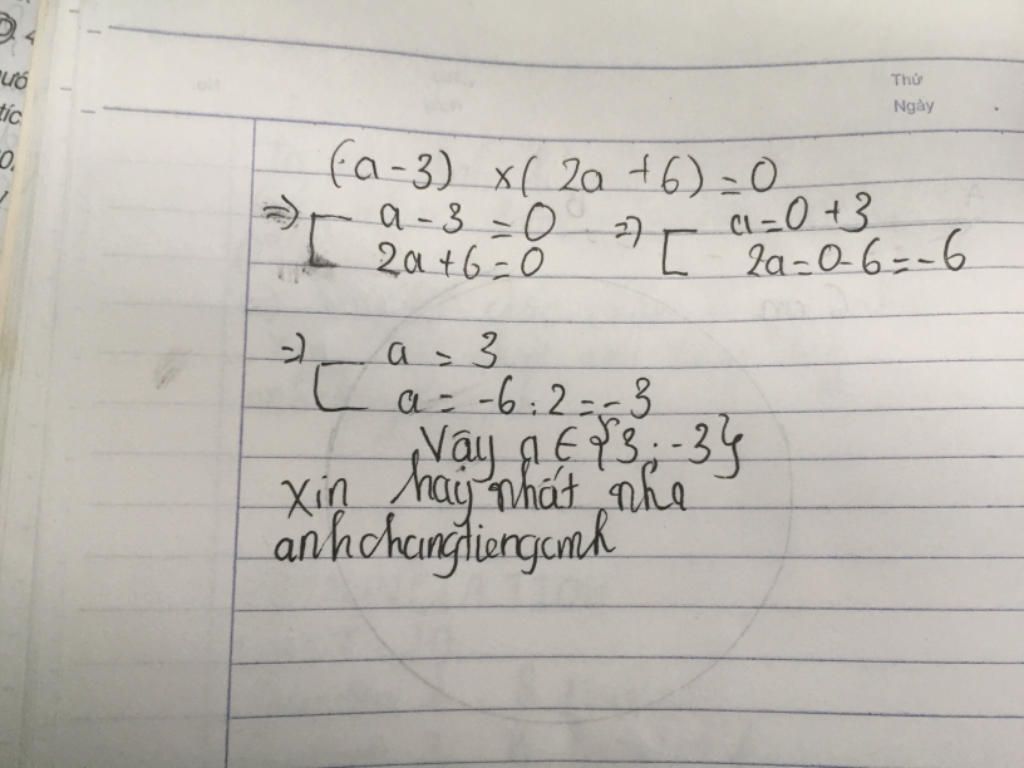 Thứ
Ngày
(a-3) x(2a+6)=0
=> [ a-3=0 => [ a=0+3
2a+6=0 2a=0-6=-6
=> [ a = 3
a = -6:2=-3
Vậy a ∈ {3;-3}
xin hay nhất nha
anhchangtiengcmh